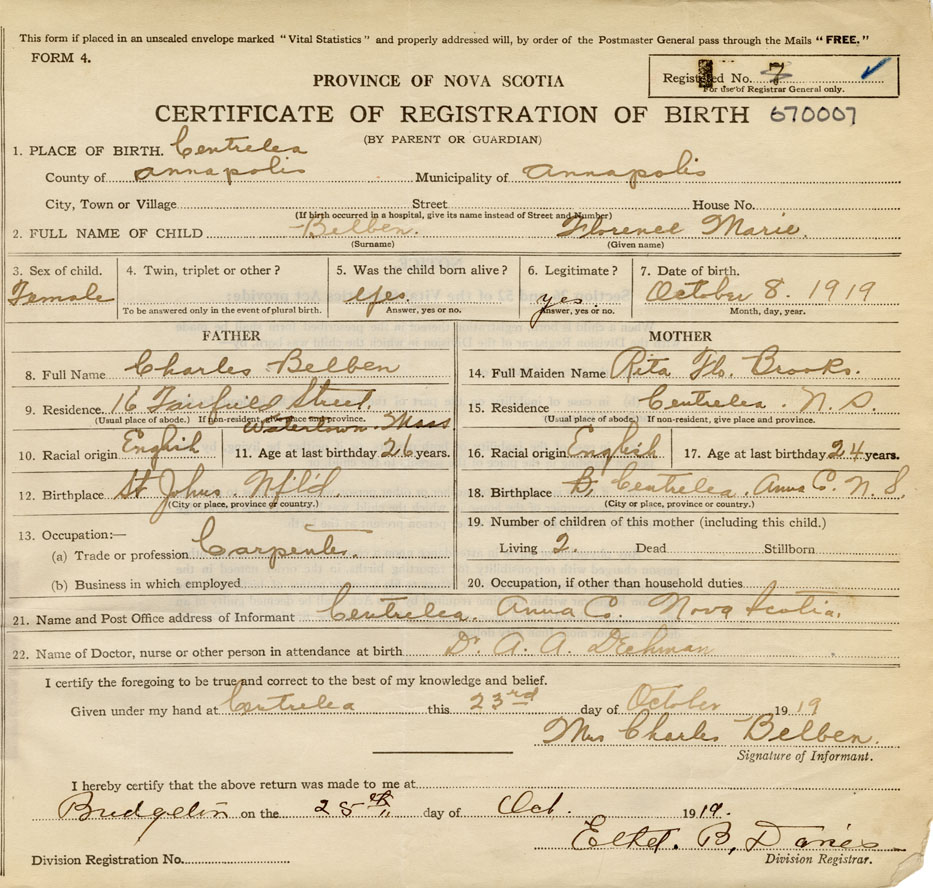 This form if placed in an unsealed envelope marked "Vital Statistics" and properly addressed will, by order of the Postmaster General pass through the Mails "FREE."
FORM 4.
Registered No. 7
For use of Registrar General only.
PROVINCE OF NOVA SCOTIA
CERTIFICATE OF REGISTRATION OF BIRTH 670007
(BY PARENT OR GUARDIAN)
1. PLACE OF BIRTH. Centrelea
County of Annapolis Municipality of Annapolis
City, Town or Village Street House No.
(If birth occurred in a hospital, give its name instead of Street and Number)
2. FULL NAME OF CHILD Belben. Florence Marie.
(Surname) (Given name)
3. Sex of child. 4. Twin, triplet or other? 5. Was the child born alive? 6. Legitimate? 7. Date of birth.
Female Yes. yes. October 8. 1919
To be answered only in the event of plural birth. Answer, yes or no. Answer, yes or no. Month, day, year.
FATHER MOTHER
8. Full Name Charles Belben
14. Full Maiden Name Rita Flo. Brooks.
9. Residence 16 Fairfield Street.
(Usual place of abode.) If non-resident, give place and province.
Watertown. Mass
15. Residence Centrelea. N.S.
(Usual place of abode.) If non-resident, give place and province.
10. Racial origin English 11. Age at last birthday 26 years.
16. Racial origin English 17. Age at last birthday 24 years.
12. Birthplace St Johns. Nfl'd.
(City or place, province or country.)
18. Birthplace Centrelea. Anna C. N.S.
(City or place, province or country.)
13. Occupation:—
(a) Trade or profession Carpenter.
(b) Business in which employed
19. Number of children of this mother (including this child.)
Living 2. Dead Stillborn
20. Occupation, if other than household duties
21. Name and Post Office address of Informant Centrelea. Anna Co. Nova Scotia.
22. Name of Doctor, nurse or other person in attendance at birth Dr. A. A. Dechman
I certify the foregoing to be true and correct to the best of my knowledge and belief.
Given under my hand at Centrelea this 23rd day of October 1919
Mrs Charles Belben.
Signature of Informant.
I hereby certify that the above return was made to me at
Bridgetown on the 25th day of Oct. 1919.
Ethel. B. Davies
Division Registration No. Division Registrar.